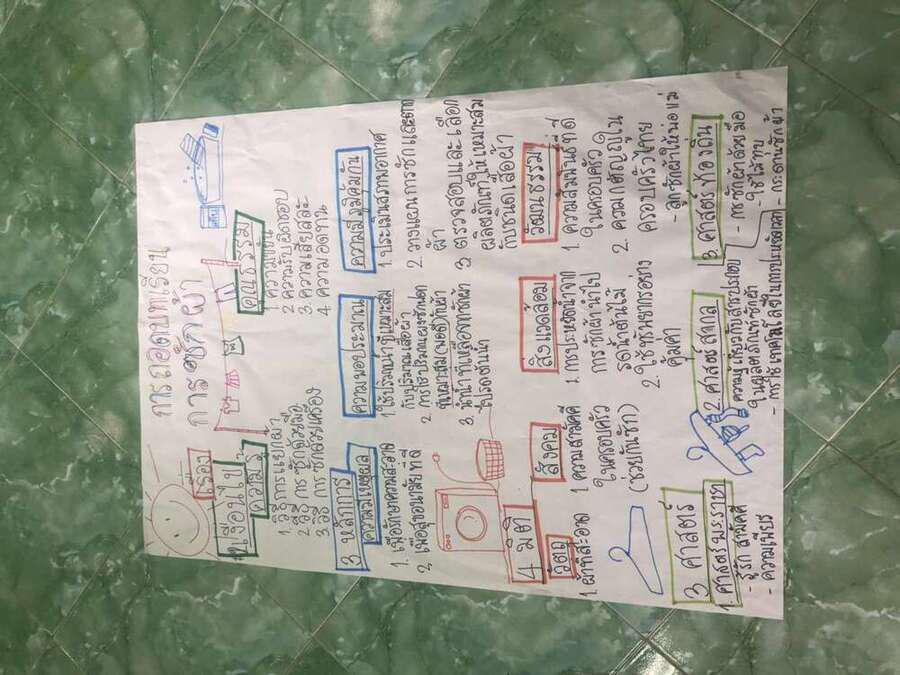 การถอดบทเรียน
เรื่อง การซักผ้า
2 เงื่อนไข
ความรู้
1 วิธีการแยกผ้า
2 วิธี การซักด้วยมือ
3 วิธี การซักด้วยเครื่อง
คุณธรรม
1 ความขยัน
2 ความรับผิดชอบ
3 ความเสียสละ
4 ความอดทน
3 หลักการ
ความมีเหตุผล
1. เพื่อรักษาความสะอาด
2. เพื่อสุขอนามัยที่ดี
ความพอประมาณ
1. ใช้ปริมาณน้ำที่เหมาะสม
กับปริมาณเสื้อผ้า
2. การใช้ปริมาณผงซักฟอก
ที่เหมาะสม(พอดีกับผ้า)
3. นำน้ำที่เหลือจากซักผ้า
ไปรดต้นไม้
ความมีภูมิคุ้มกัน
1. ประเมินสภาพอากาศ
2. วางแผนการซักและตาก
ผ้า
3. ตรวจสอบและเลือก
ผลิตภัณฑ์ให้เหมาะสม
กับชนิดเสื้อผ้า
4 มิติ
วัตถุ
1. ผ้าที่สะอาด
สังคม
1 ความสามัคคี
ในครอบครัว
(ช่วยกันซัก)
สิ่งแวดล้อม
1. การประหยัดน้ำจาก
การซักผ้านำไป
รดน้ำต้นไม้
2. ใช้ทรัพยากรอย่าง
คุ้มค่า
วัฒนธรรม
1. ความสัมพันธ์ที่ดี
ในครอบครัว
2 ความกตัญญูใน
ครอบครัวไทย
- ลูกซักผ้าให้พ่อแม่
3 ศาสตร์
1. ศาสตร์พระราชา
- รู้รัก สามัคคี
- ความเพียร
2. ศาสตร์สากล
- ความรู้เกี่ยวกับสารประกอบ
ในผลิตภัณฑ์ซักผ้า
- การใช้เทคโนโลยีในการประหยัดเวลา
3. ศาสตร์ท้องถิ่น
- การซักผ้าด้วยมือ
- กระดานซักผ้า